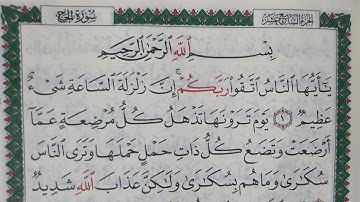 الجزء السابع عشر سورة الحج
بِسْمِ ٱللَّهِ ٱلرَّحْمَٰنِ ٱلرَّحِيمِ
يَٰٓأَيُّهَا ٱلنَّاسُ ٱتَّقُوا۟ رَبَّكُمْ ۚ إِنَّ زَلْزَلَةَ ٱلسَّاعَةِ شَىْءٌ
عَظِيمٌ ۝١ يَوْمَ تَرَوْنَهَا تَذْهَلُ كُلُّ مُرْضِعَةٍ عَمَّآ
أَرْضَعَتْ وَتَضَعُ كُلُّ ذَاتِ حَمْلٍ حَمْلَهَا وَتَرَى ٱلنَّاسَ
سُكَٰرَىٰ وَمَا هُم بِسُكَٰرَىٰ وَلَٰكِنَّ عَذَابَ ٱللَّهِ شَدِيدٌ